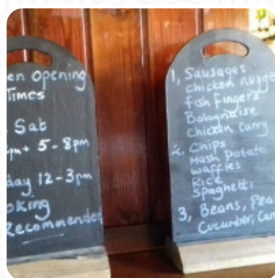 en Opening
Times
Sat
pm + 5-8pm
day 12-3pm
oking
Recommended
1, Sausages
chicken nugge
fish fingers
Bolognaise
Chicken Curry
2, Chips
Mash potato
waffles
Rice
Spaghetti
3, Beans, Pea
Cucumber, Car